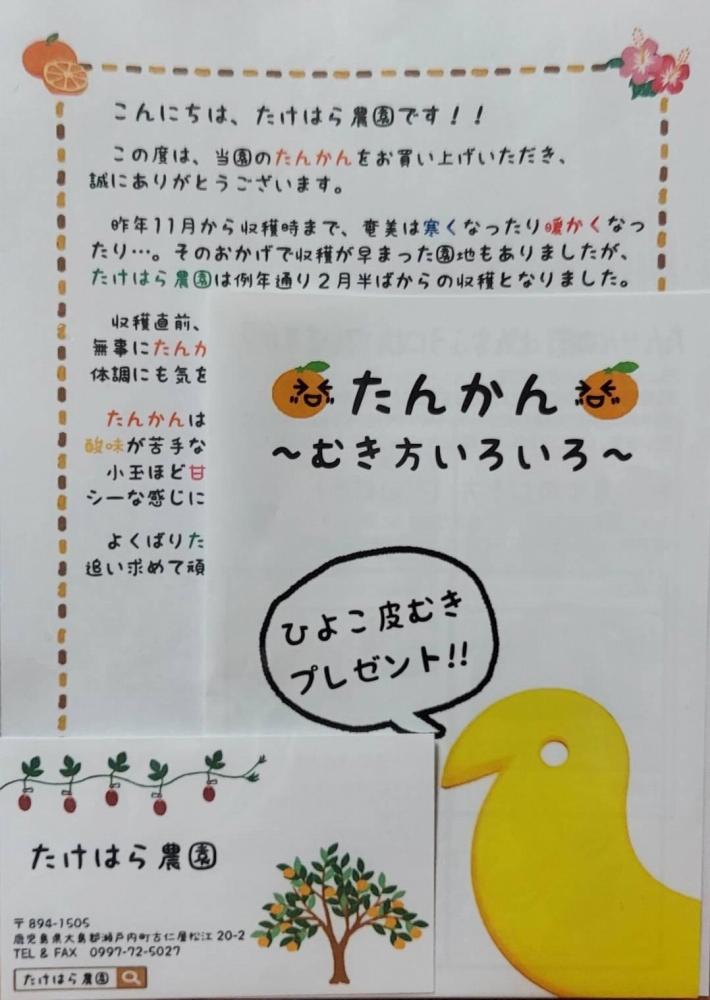 こんにちは、たけはら農園です!!
この度は、当園のたんかんをお買い上げいただき、
誠にありがとうございます。
昨年11月から収穫時まで、奄美は寒くなったり暖かくなっ
たり…。そのおかげで収穫が早まった園地もありましたが、
たけはら農園は例年通り2月半ばからの収穫となりました。
収穫直前、
無事にたんか
体調にも気を
たんかんは
酸味が苦手な
小玉ほど甘
シーな感じに
よくばりた
追い求めて頑
たんかん
~むき方いろいろ~
ひよこ皮むき
プレゼント!!
たけはら農園
〒894-1505
鹿児島県大島郡瀬戸内町古仁屋松江20-2
TEL & FAX 0997-72-5027
たけはら農園